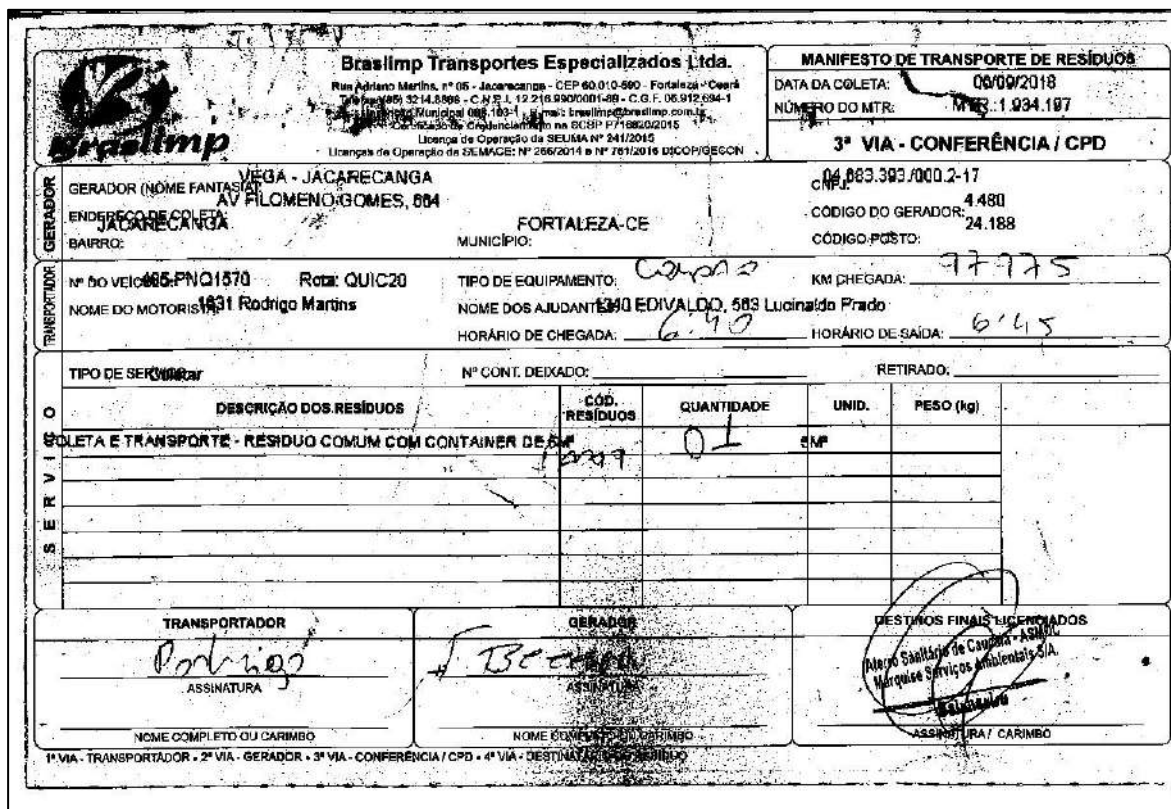 Braslimp
Braslimp Transportes Especializados Ltda.
Rua Adriano Martins, nº 05 - Jacarecanga - CEP 60.010-590 - Fortaleza - Ceará
3214.8888 - C.N.P.J. 12.216.990/0001-89 - C.G.F. 06.912.694-1
Municipal
Certificado de Credenciamento na SCSP P716820/2015
Licença de Operação da SEUMA Nº 241/2015
Licenças de Operação da SEMACE: Nº 266/2014 e Nº 761/2016 DICOP/GECON
MANIFESTO DE TRANSPORTE DE RESÍDUOS
DATA DA COLETA: 06/09/2018
NÚMERO DO MTR: MTR.:1.934.197
3ª VIA - CONFERÊNCIA / CPD
GERADOR
GERADOR (NOME FANTASIA): VEGA - JACARECANGA
ENDEREÇO DE COLETA: AV FILOMENO GOMES, 664
BAIRRO: JACARECANGA
MUNICÍPIO: FORTALEZA-CE
CNPJ: 04.683.393./000.2-17
CÓDIGO DO GERADOR: 4.480
CÓDIGO POSTO: 24.188
TRANSPORTADOR
Nº DO VEÍCULO: PNQ1570 Rota: QUIC20
TIPO DE EQUIPAMENTO:
KM CHEGADA: 97975
NOME DO MOTORISTA: 1631 Rodrigo Martins
NOME DOS AJUDANTES: 1340 EDIVALDO, 563 Lucinaldo Prado
HORÁRIO DE CHEGADA: 6:40
HORÁRIO DE SAÍDA: 6:45
SERVIÇO
TIPO DE SERVIÇO: Coletar
Nº CONT. DEIXADO:
RETIRADO:
DESCRIÇÃO DOS RESÍDUOS
CÓD. RESÍDUOS
QUANTIDADE
UNID.
PESO (kg)
COLETA E TRANSPORTE - RESIDUO COMUM COM CONTAINER DE 5M³
01
5M³
TRANSPORTADOR
Rodrigo
ASSINATURA
NOME COMPLETO OU CARIMBO
GERADOR
ASSINATURA
NOME COMPLETO OU CARIMBO
DESTINOS FINAIS LICENCIADOS
Aterro Sanitário de Caucaia - ASMOC
Marquise Serviços Ambientais S/A.
Balanceiro
ASSINATURA / CARIMBO
1ª VIA - TRANSPORTADOR • 2ª VIA - GERADOR • 3ª VIA - CONFERÊNCIA / CPD • 4ª VIA - DESTINATÁRIO DO RESÍDUO